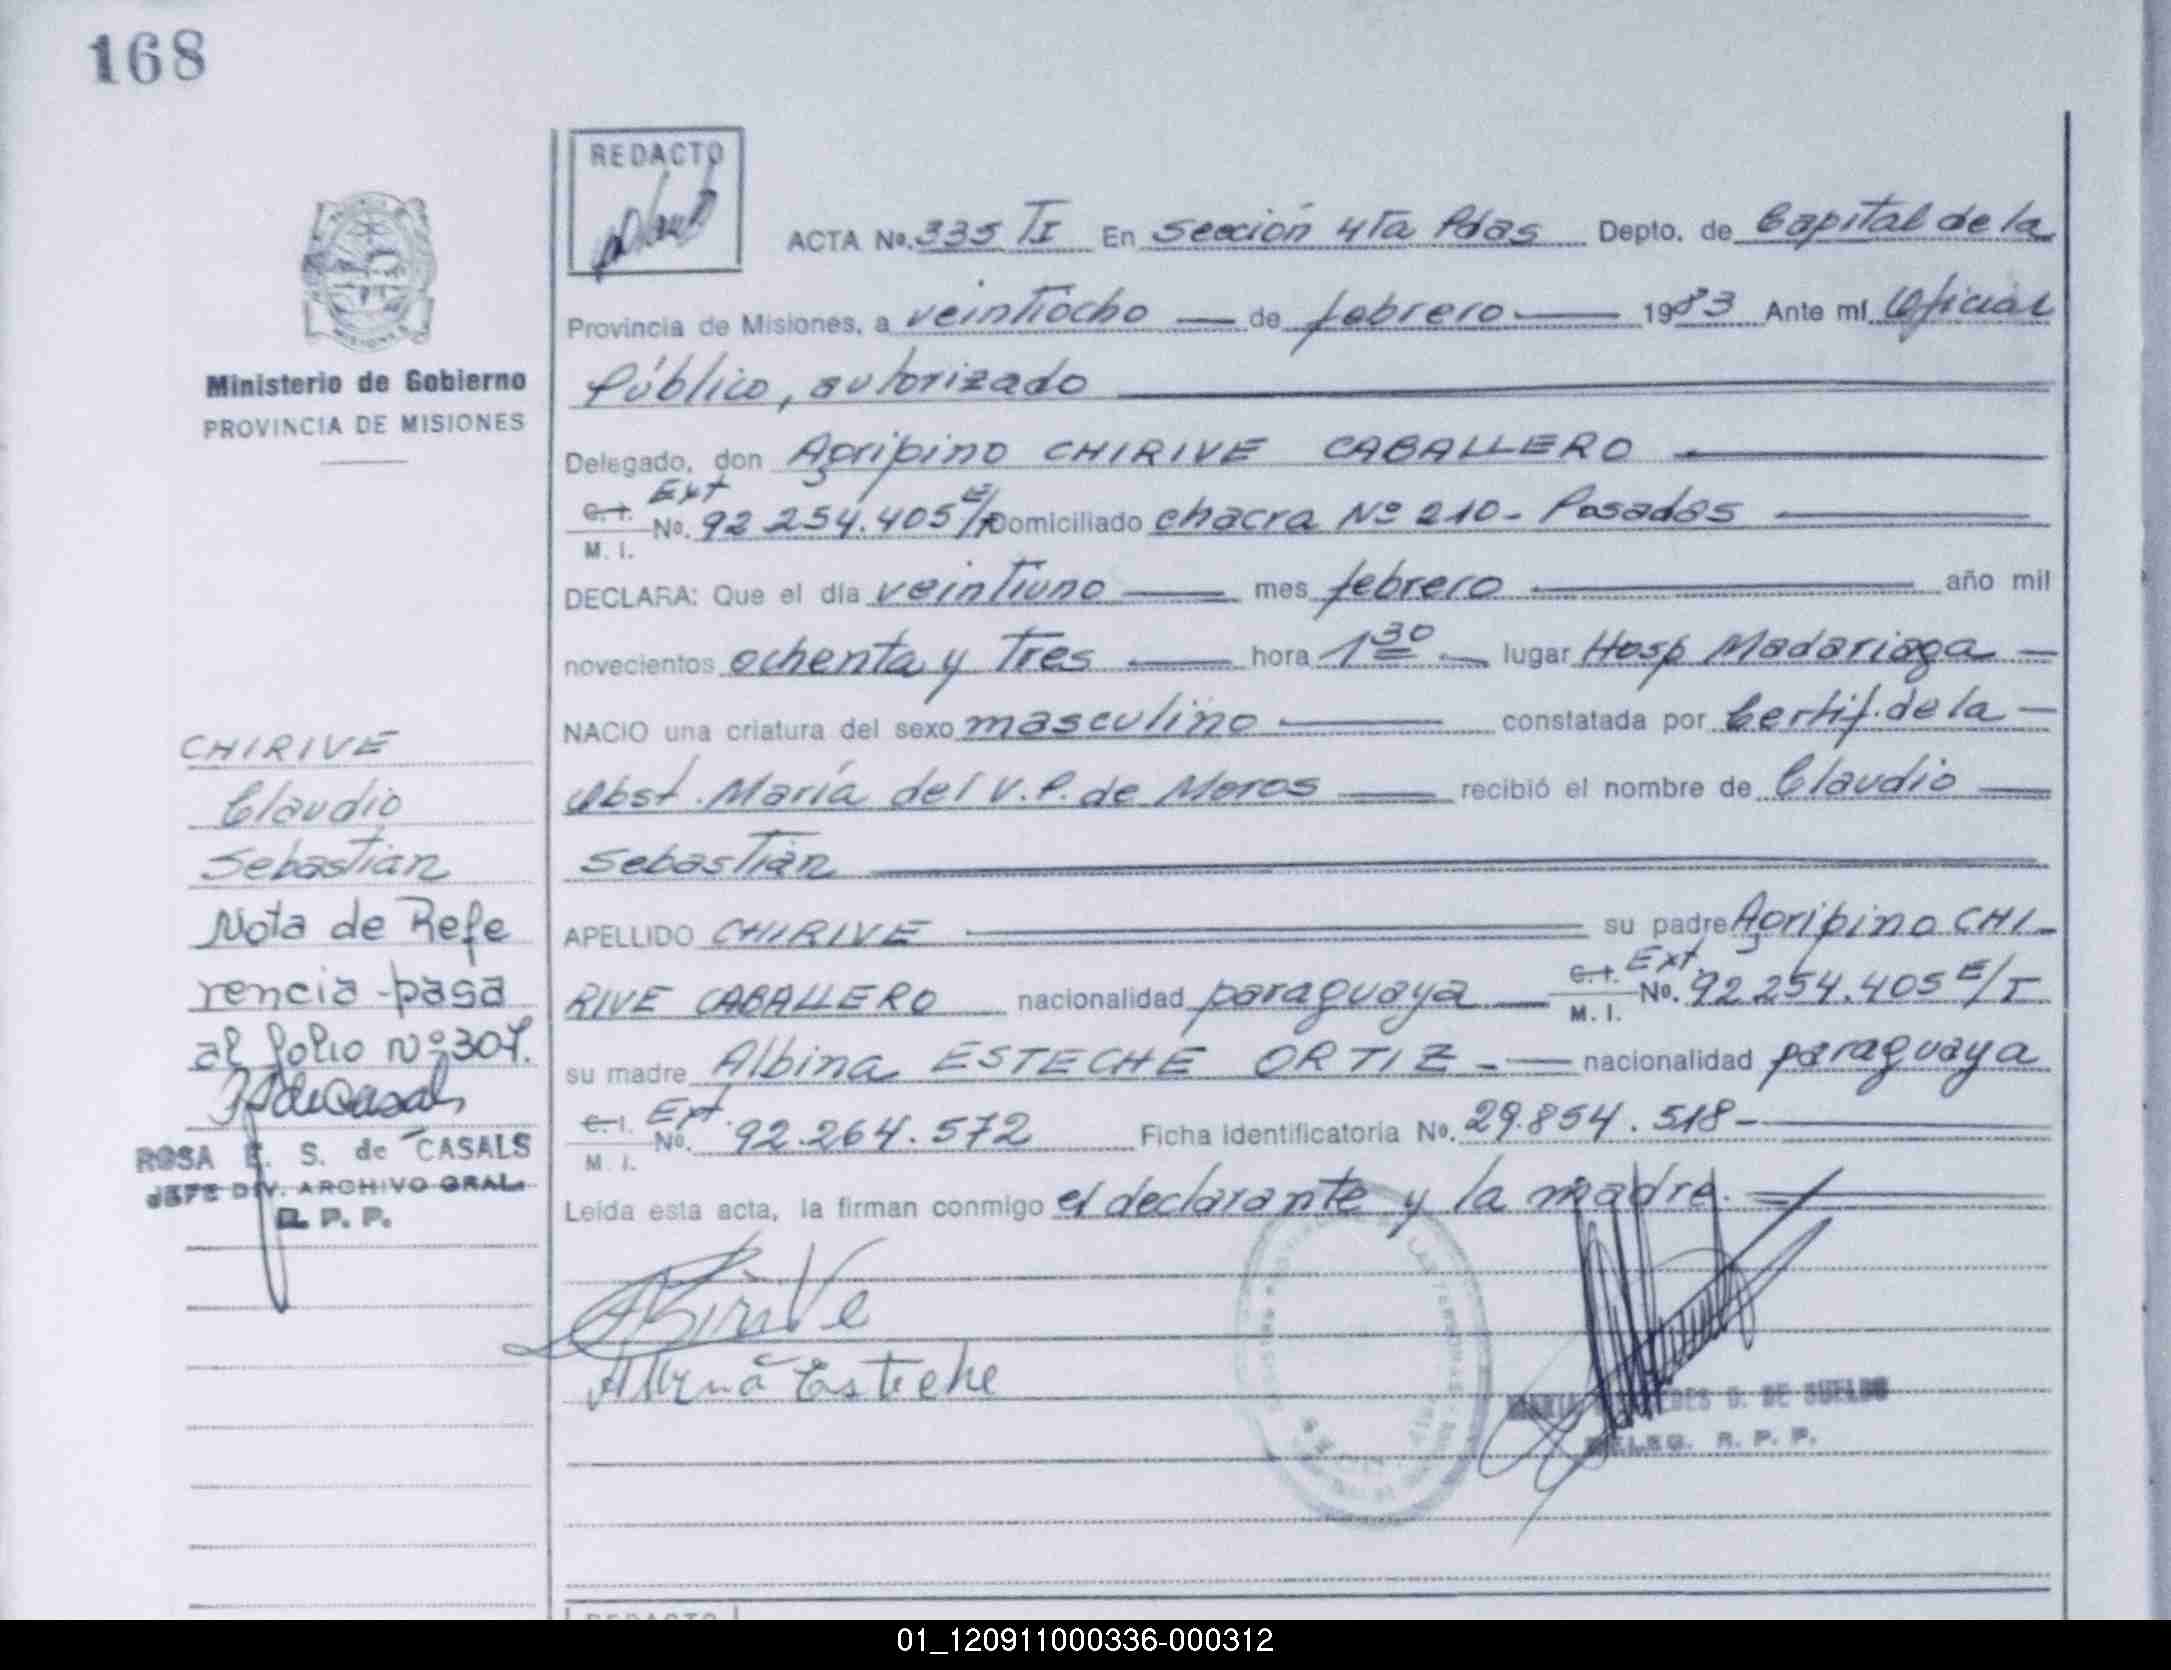 168
REDACTO
ACTA No. 335 TI En Sección 4ta Pdas Depto. de Capital de la
Provincia de Misiones, a veintiocho — de febrero — 1983 Ante mí Oficial
Público, autorizado
Delegado, don Agripino CHIRIVE CABALLERO
C.I. Ext
M. I. No. 92 254.405 E/T Domiciliado chacra Nº 210 - Posadas
DECLARA: Que el día veintiuno — mes febrero — año mil
novecientos ochenta y tres — hora 1 30 — lugar Hosp Madariaga —
NACIO una criatura del sexo masculino — constatada por Certif. de la —
Obst. María del V. P. de Moros — recibió el nombre de Claudio —
Sebastian
APELLIDO CHIRIVE — su padre Agripino CHI-
RIVE CABALLERO nacionalidad paraguaya — C.I. Ext. M. I. No. 92 254.405 E/T
su madre Albina ESTECHE ORTIZ - — nacionalidad paraguaya
C.I. Ext. M. I. No. 92.264.572 Ficha identificatoria No. 29.854.518-
Leída esta acta, la firman conmigo el declarante y la madre.
Albina Esteche
DELEG. R. P. P.
Ministerio de Gobierno
PROVINCIA DE MISIONES
CHIRIVE
Claudio
Sebastian
Nota de Refe
rencia pasa
al folio Nº 307.
ROSA E. S. de CASALS
JEFE DIV. ARCHIVO GRAL.
R. P. P.
REDACTO
01_120911000336-000312